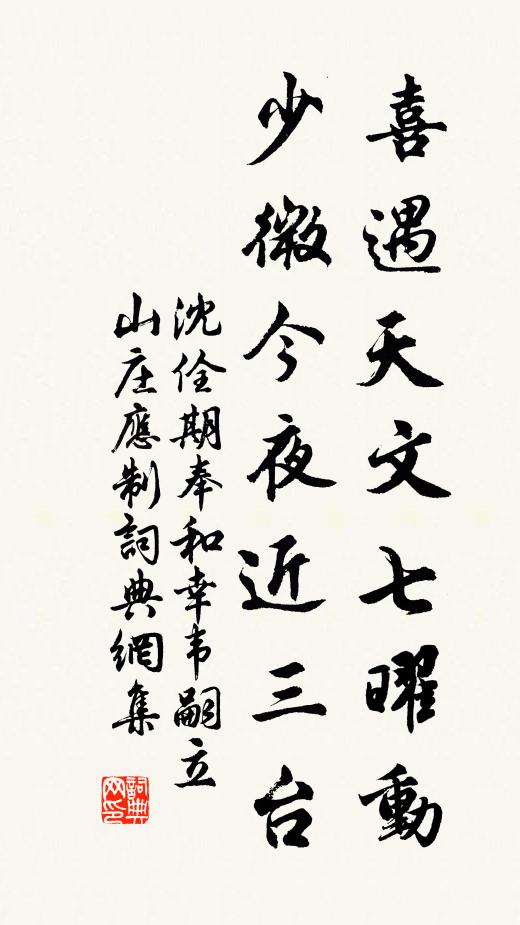 喜遇天文七曜動
少微今夜近三台
沈佺期奉和幸韦嗣立
山庄應制詞典網集
詞典
网印